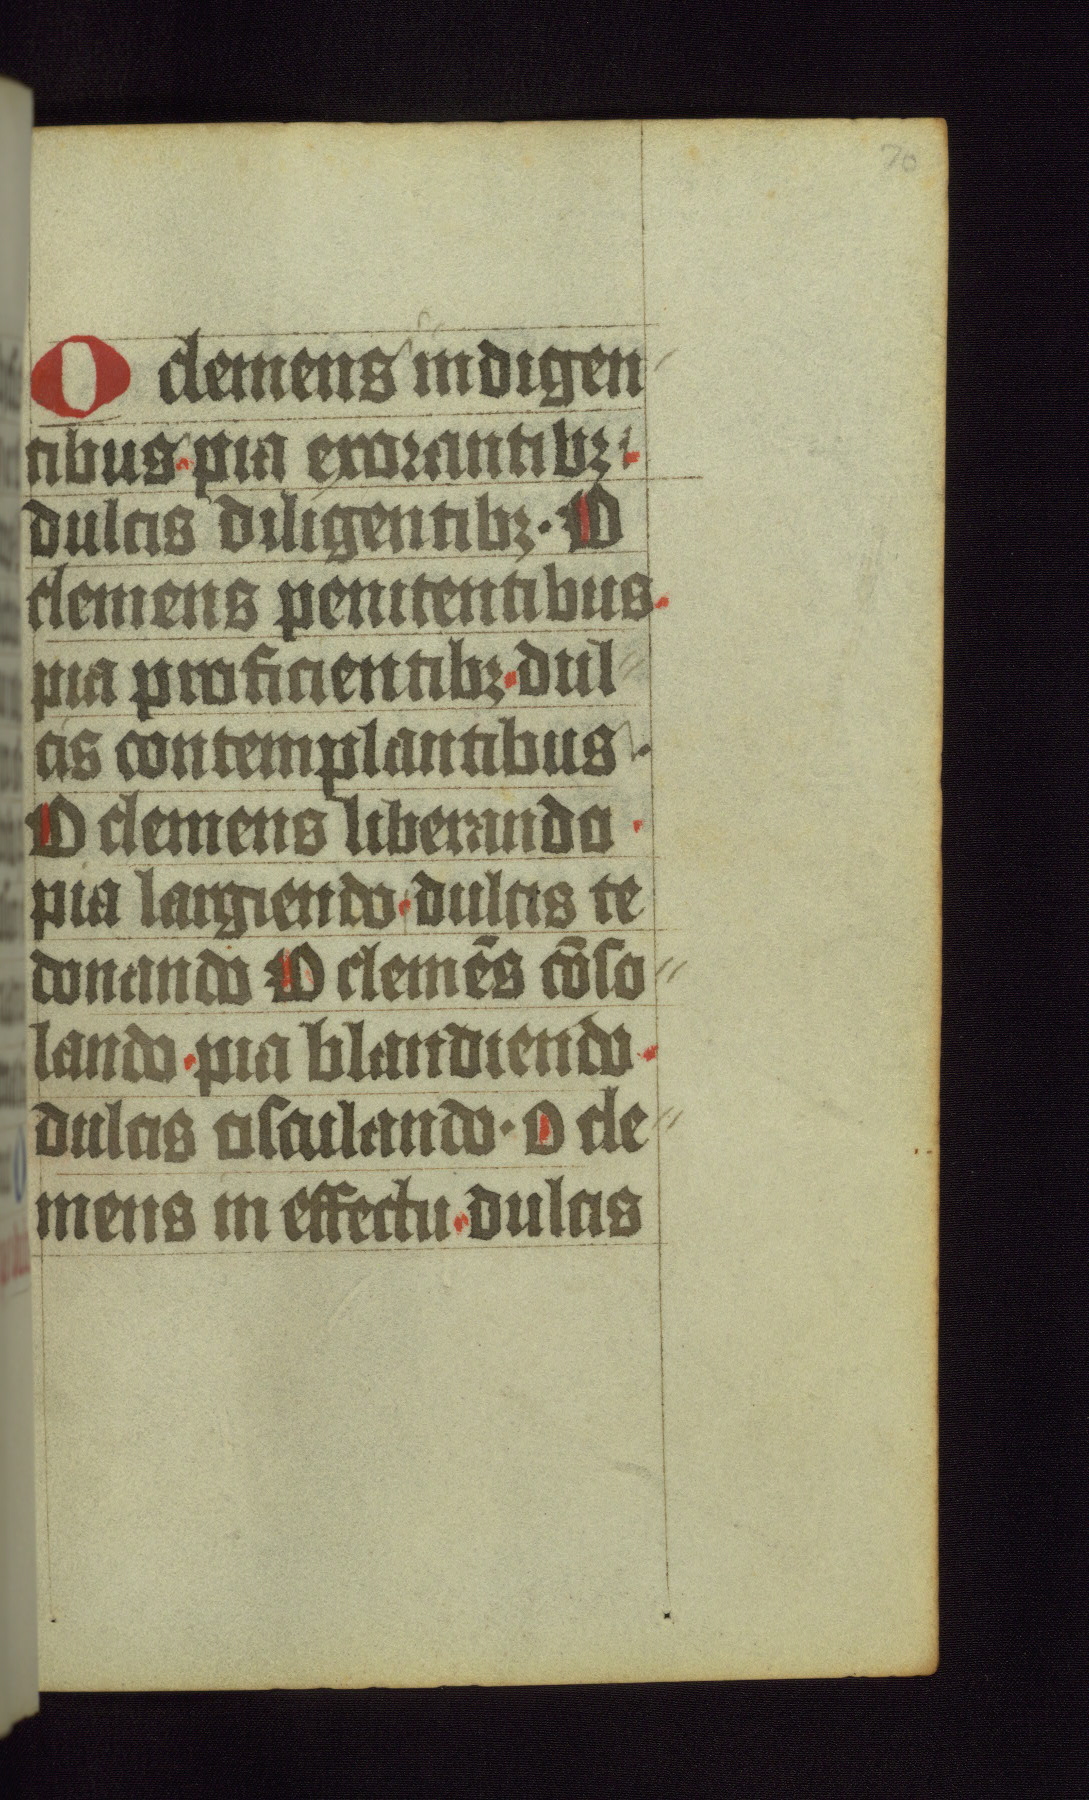 70
O clemens indigen
tibus pia exorantibꝫ
dulcis diligentibꝫ. O
clemens penitentibus.
pia proficientibꝫ dul
cis contemplantibus.
O clemens liberando
pia largiendo dulcis te
donando O clemēs cōso
lando pia blandiendo
dulcis osculando. O cle
mens in effectu dulcis